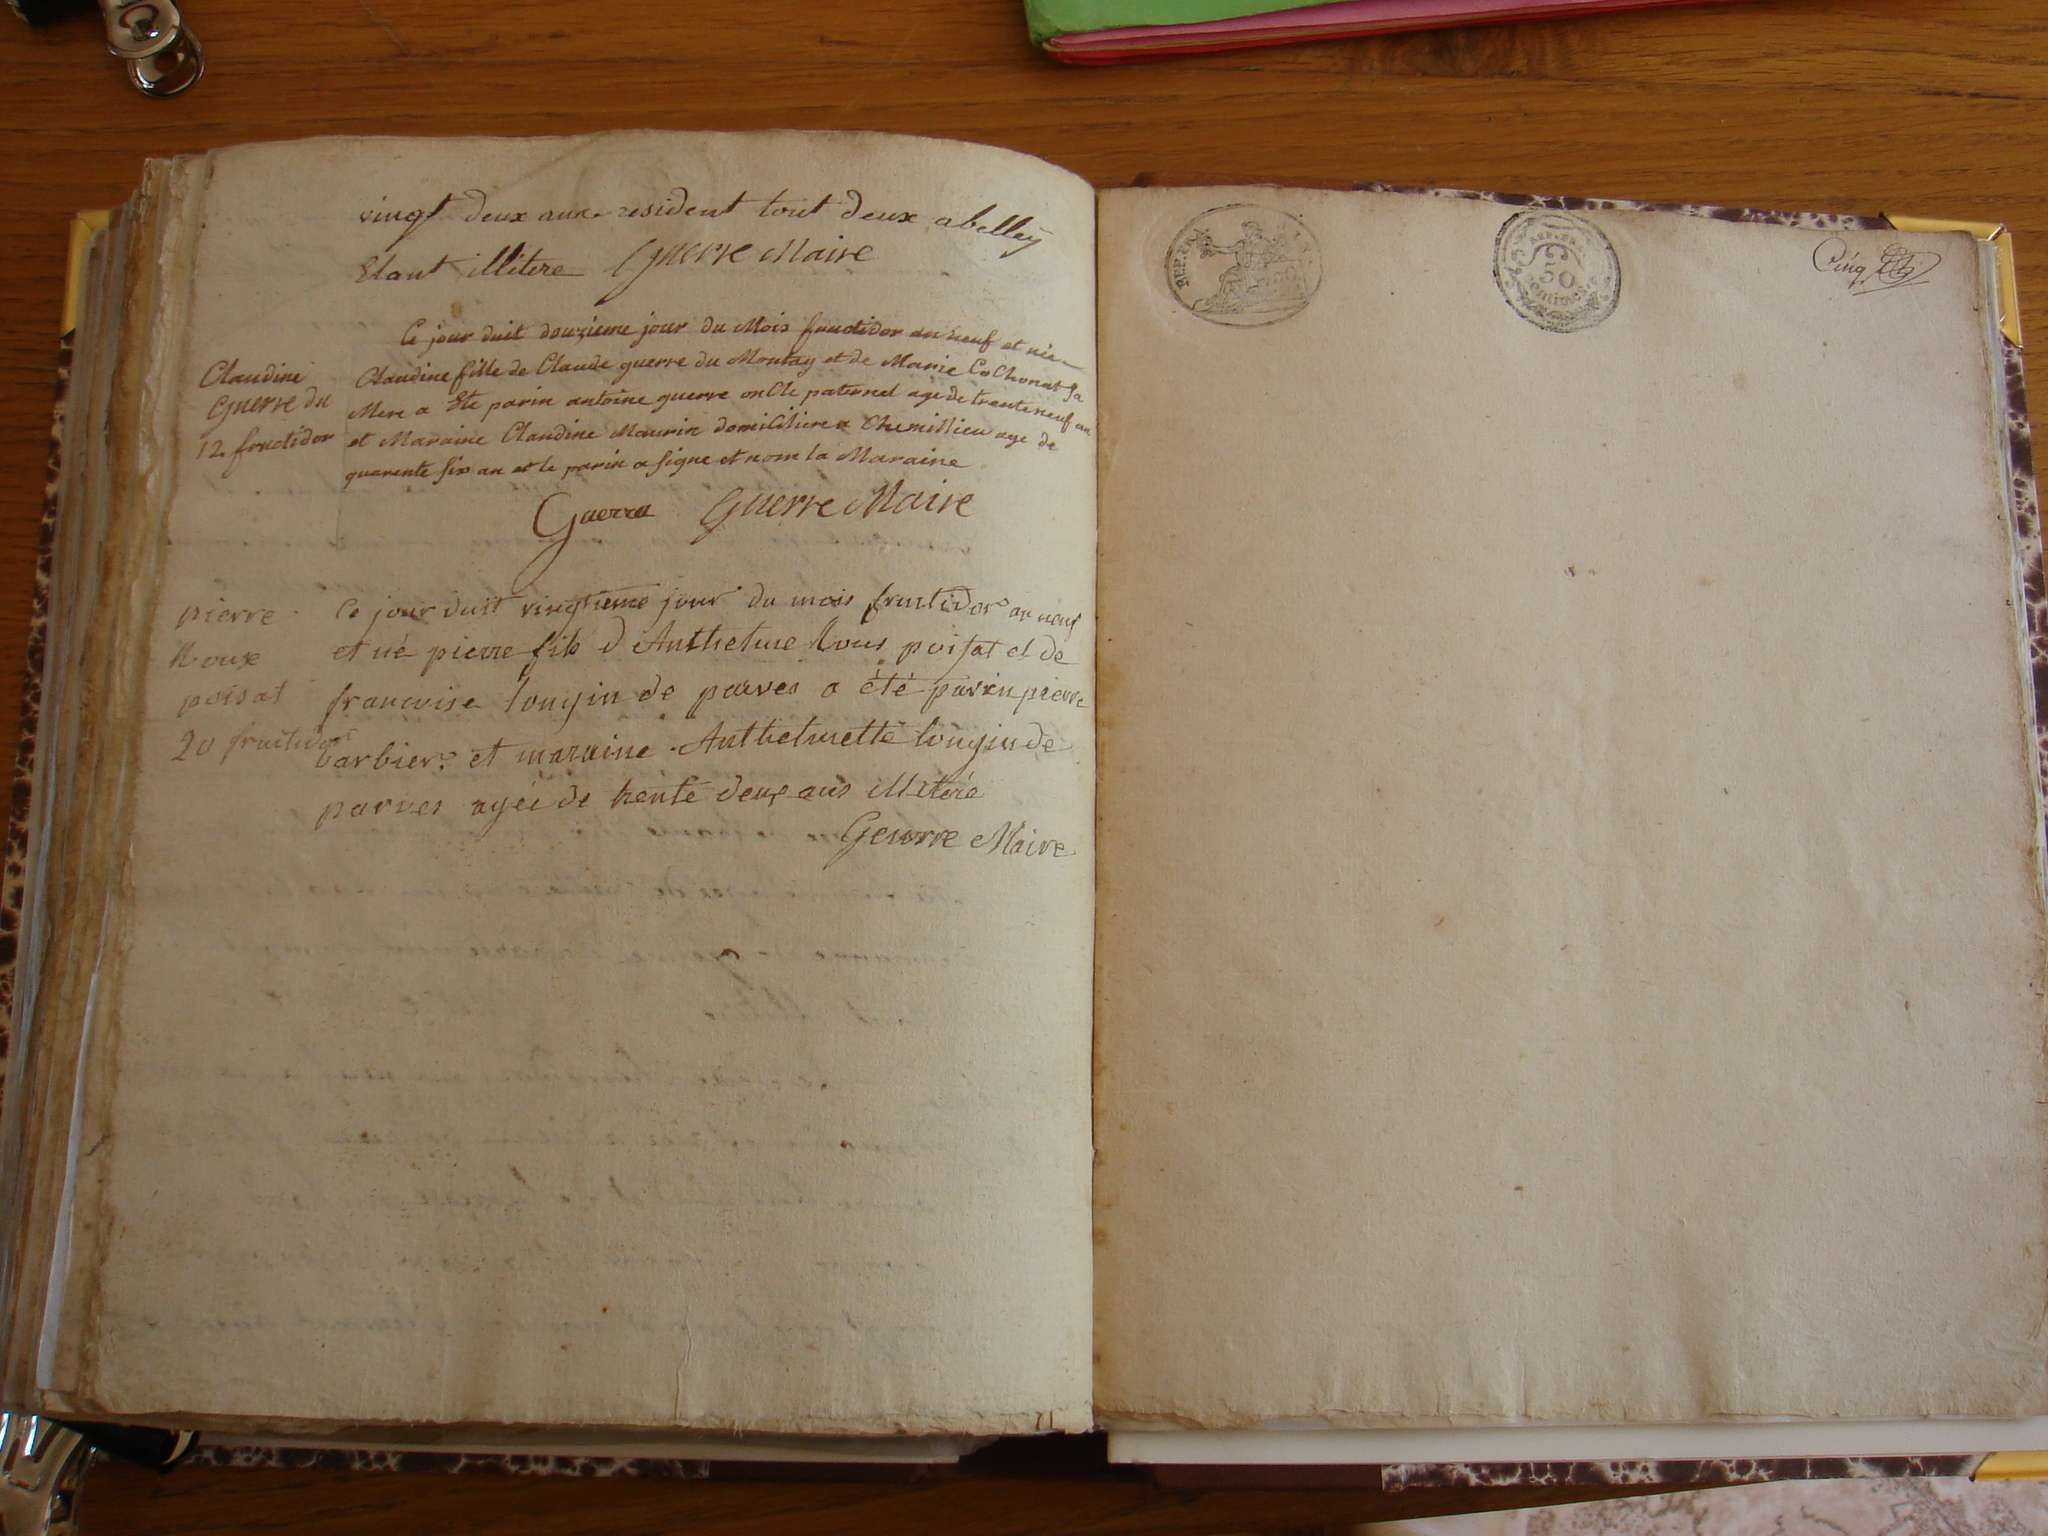 vingt deux ans resident tout deux abelley
Etant illitere Guerre Maire
Ce jour duit douzieme jour du Mois fructidor an neuf et née
Claudine fille de Claude guerre du Montay et de Marie Cochonat Sa
Mere a Ete parin antoine guerre oncle paternel age de trente neuf an
et Maraine Claudine Maurin domiciliere a Chemillieu age de
quarente six an et le parin a signe et nom la Maraine
Guerre Guerre Maire
Claudine
Guerre du
12 fructidor
Ce jour duit vingtieme jour du mois fructidor an neuf
et né pierre fils d'Anthelme Roux poisat et de
francoise longin de parves a été parin pierre
barbier et maraine Anthelmette longin de
parves agée de trente deux ans illiteré
Geurre Maire
pierre
Roux
poisat
20 fructidor
REP. FRA.
REP. FRA.
50
centimes
Cinq